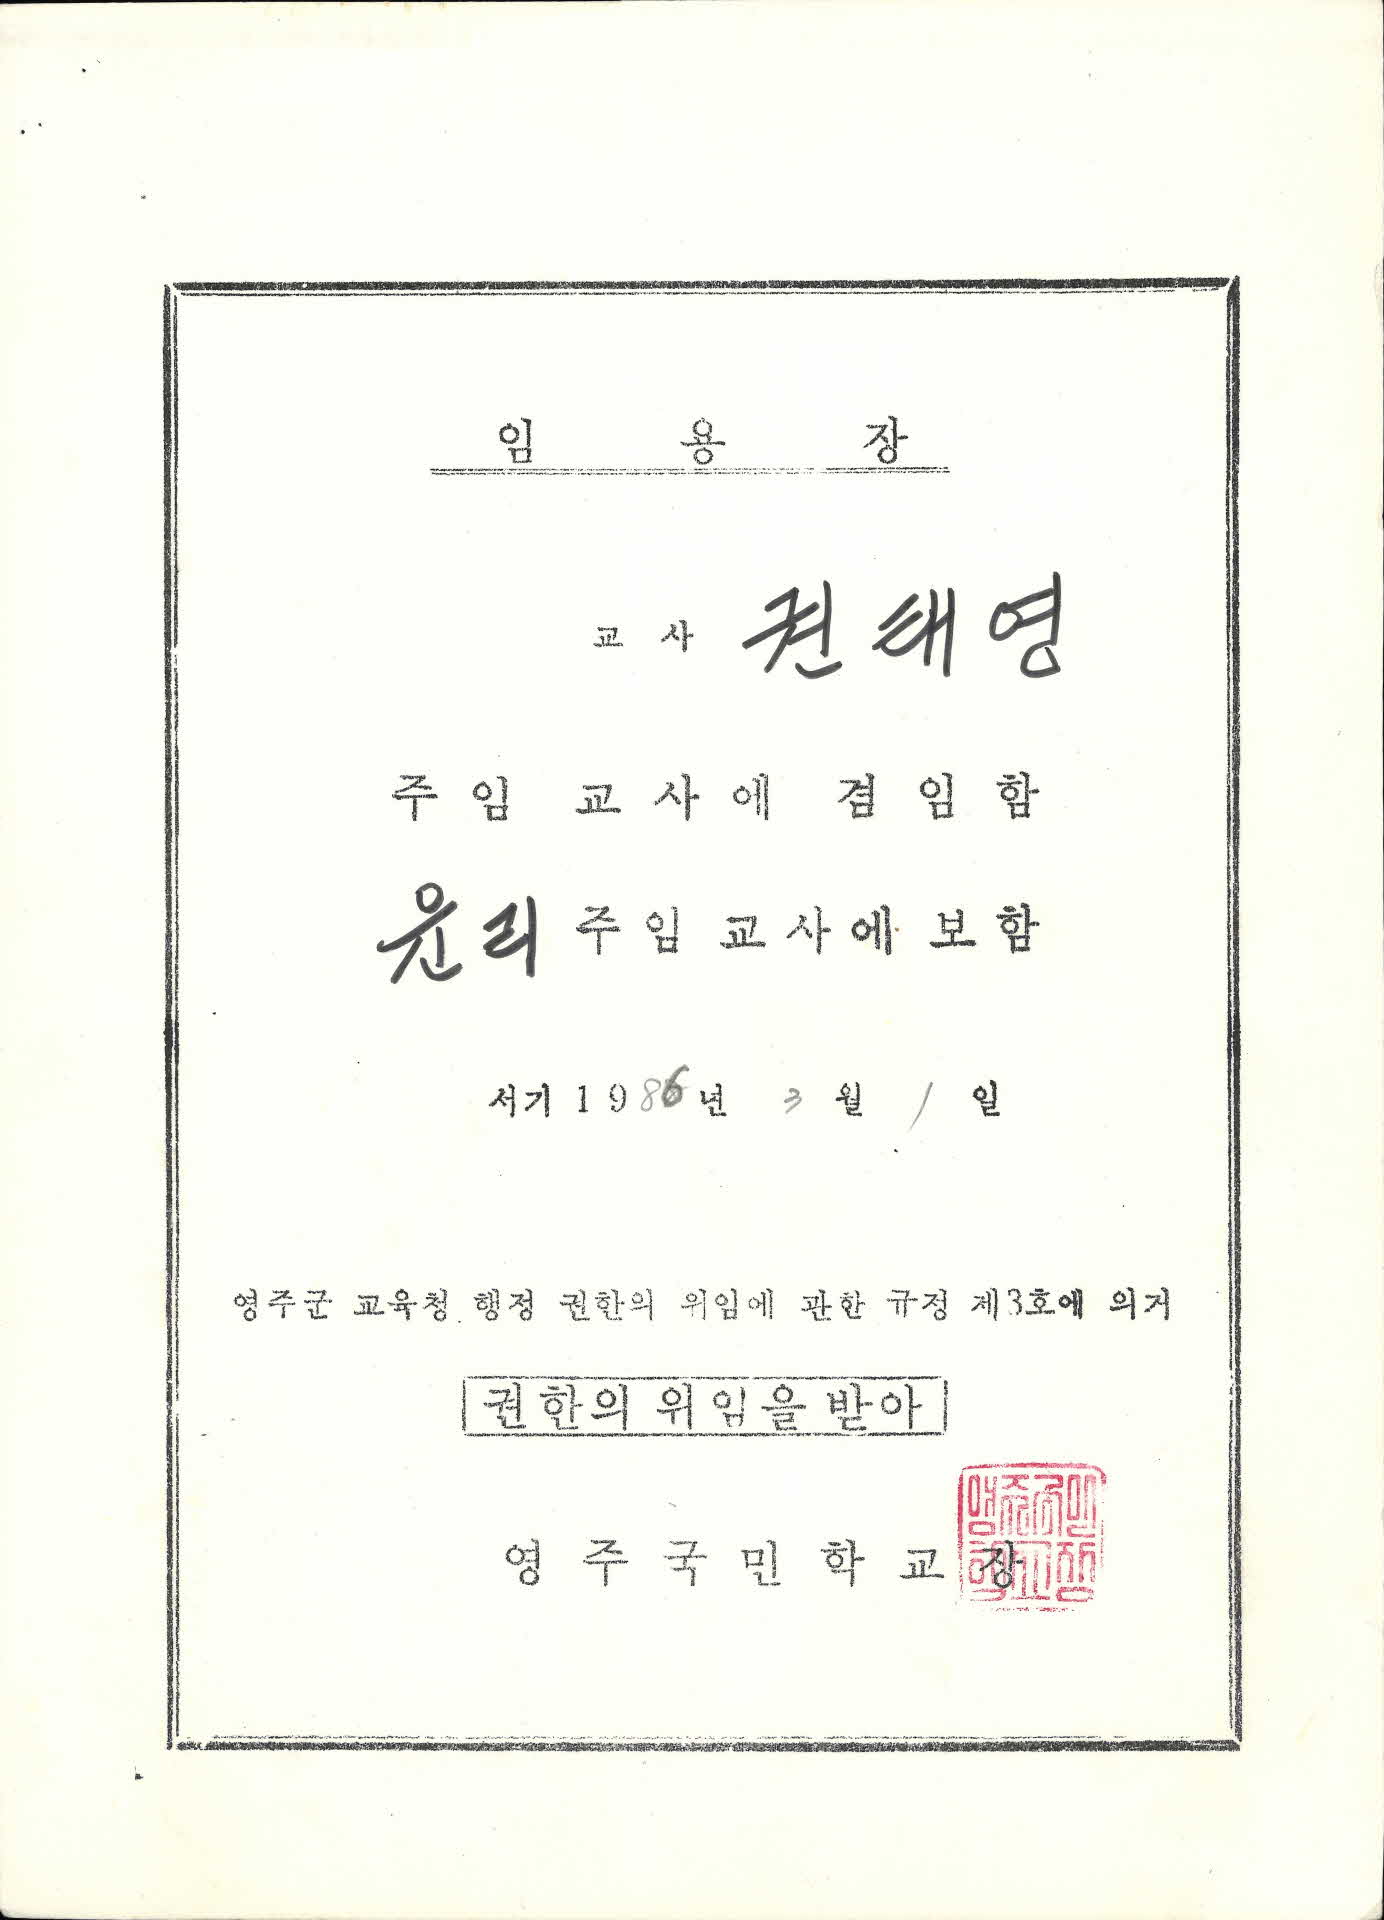 임 용 장
교 사 권태영
주 임 교 사 에 겸 임 함
윤리 주 임 교 사 에 보 함
서기 1986년 3 월 1 일
영주군 교육청 행정 권한의 위임에 관한 규정 제3호에 의거
권한의 위임을 받아
영 주 국 민 학 교 장
영주국민
학교장